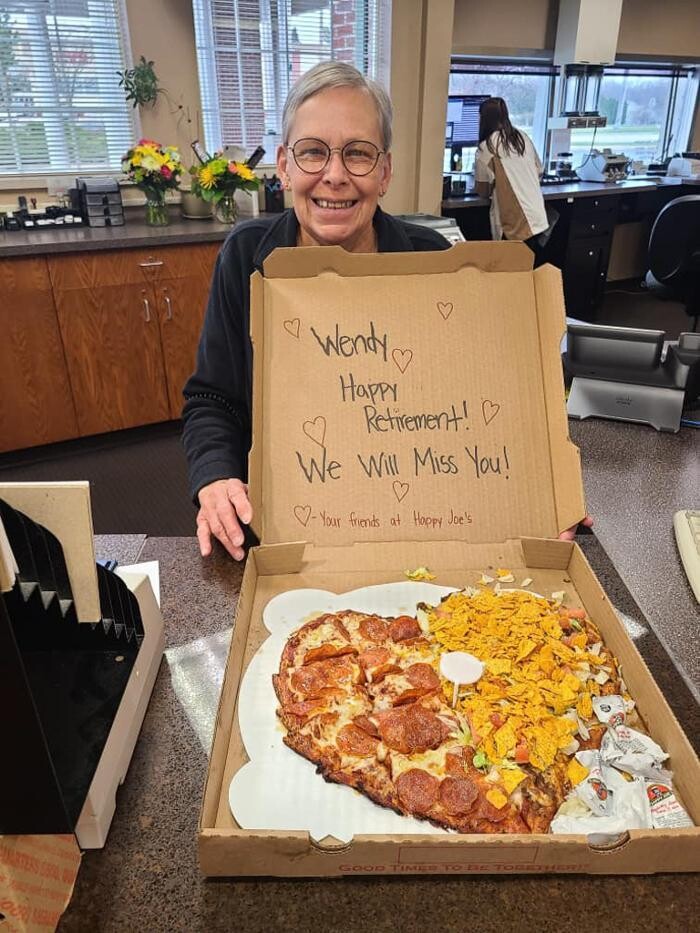 Wendy
Happy
Retirement!
We Will Miss You!
-Your friends at Happy Joe's
GOOD TIMES TO BE TOGETHER!